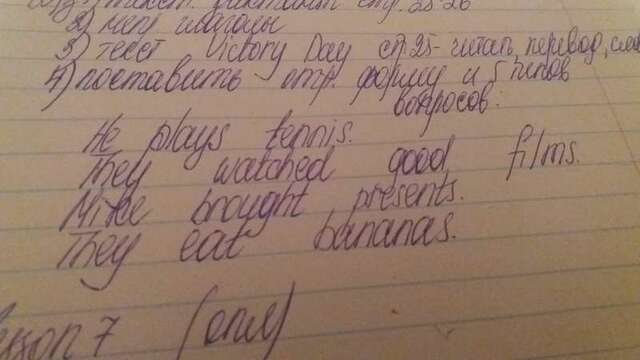 стр. 25-26
2) неправ глаголы
3) текст Victory Day стр 25- читать, перевод, слова
4) поставить отр. форму и 5 типов
вопросов.
He plays tennis.
They watched good films.
Mike brought presents.
They eat bananas.
Lesson 7